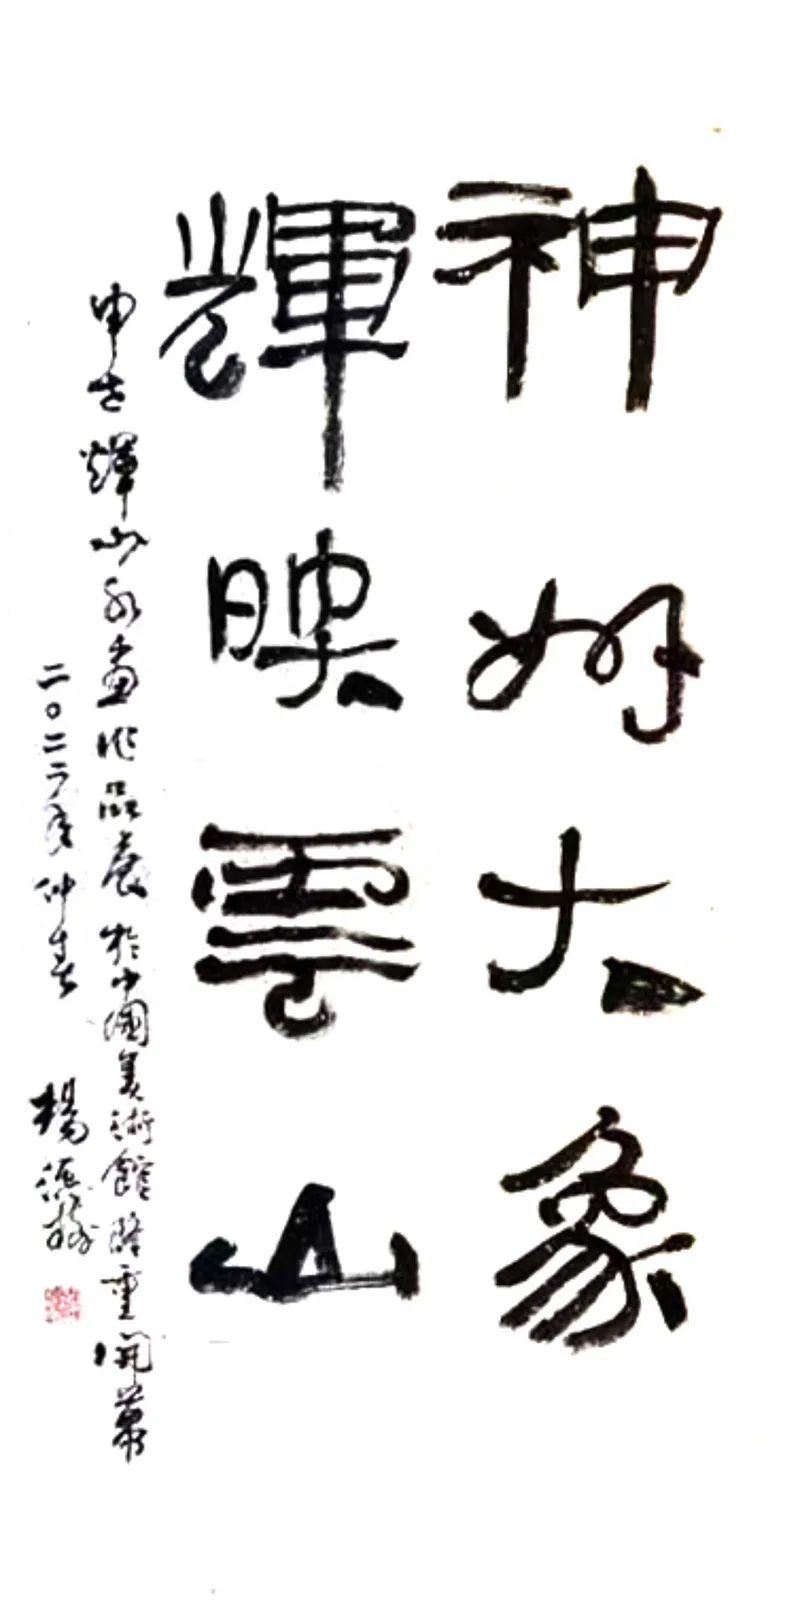 神大象
輝映雲山
申世輝山水畫作品展於中國美術館隆重開幕
二〇二二年仲春 楊德